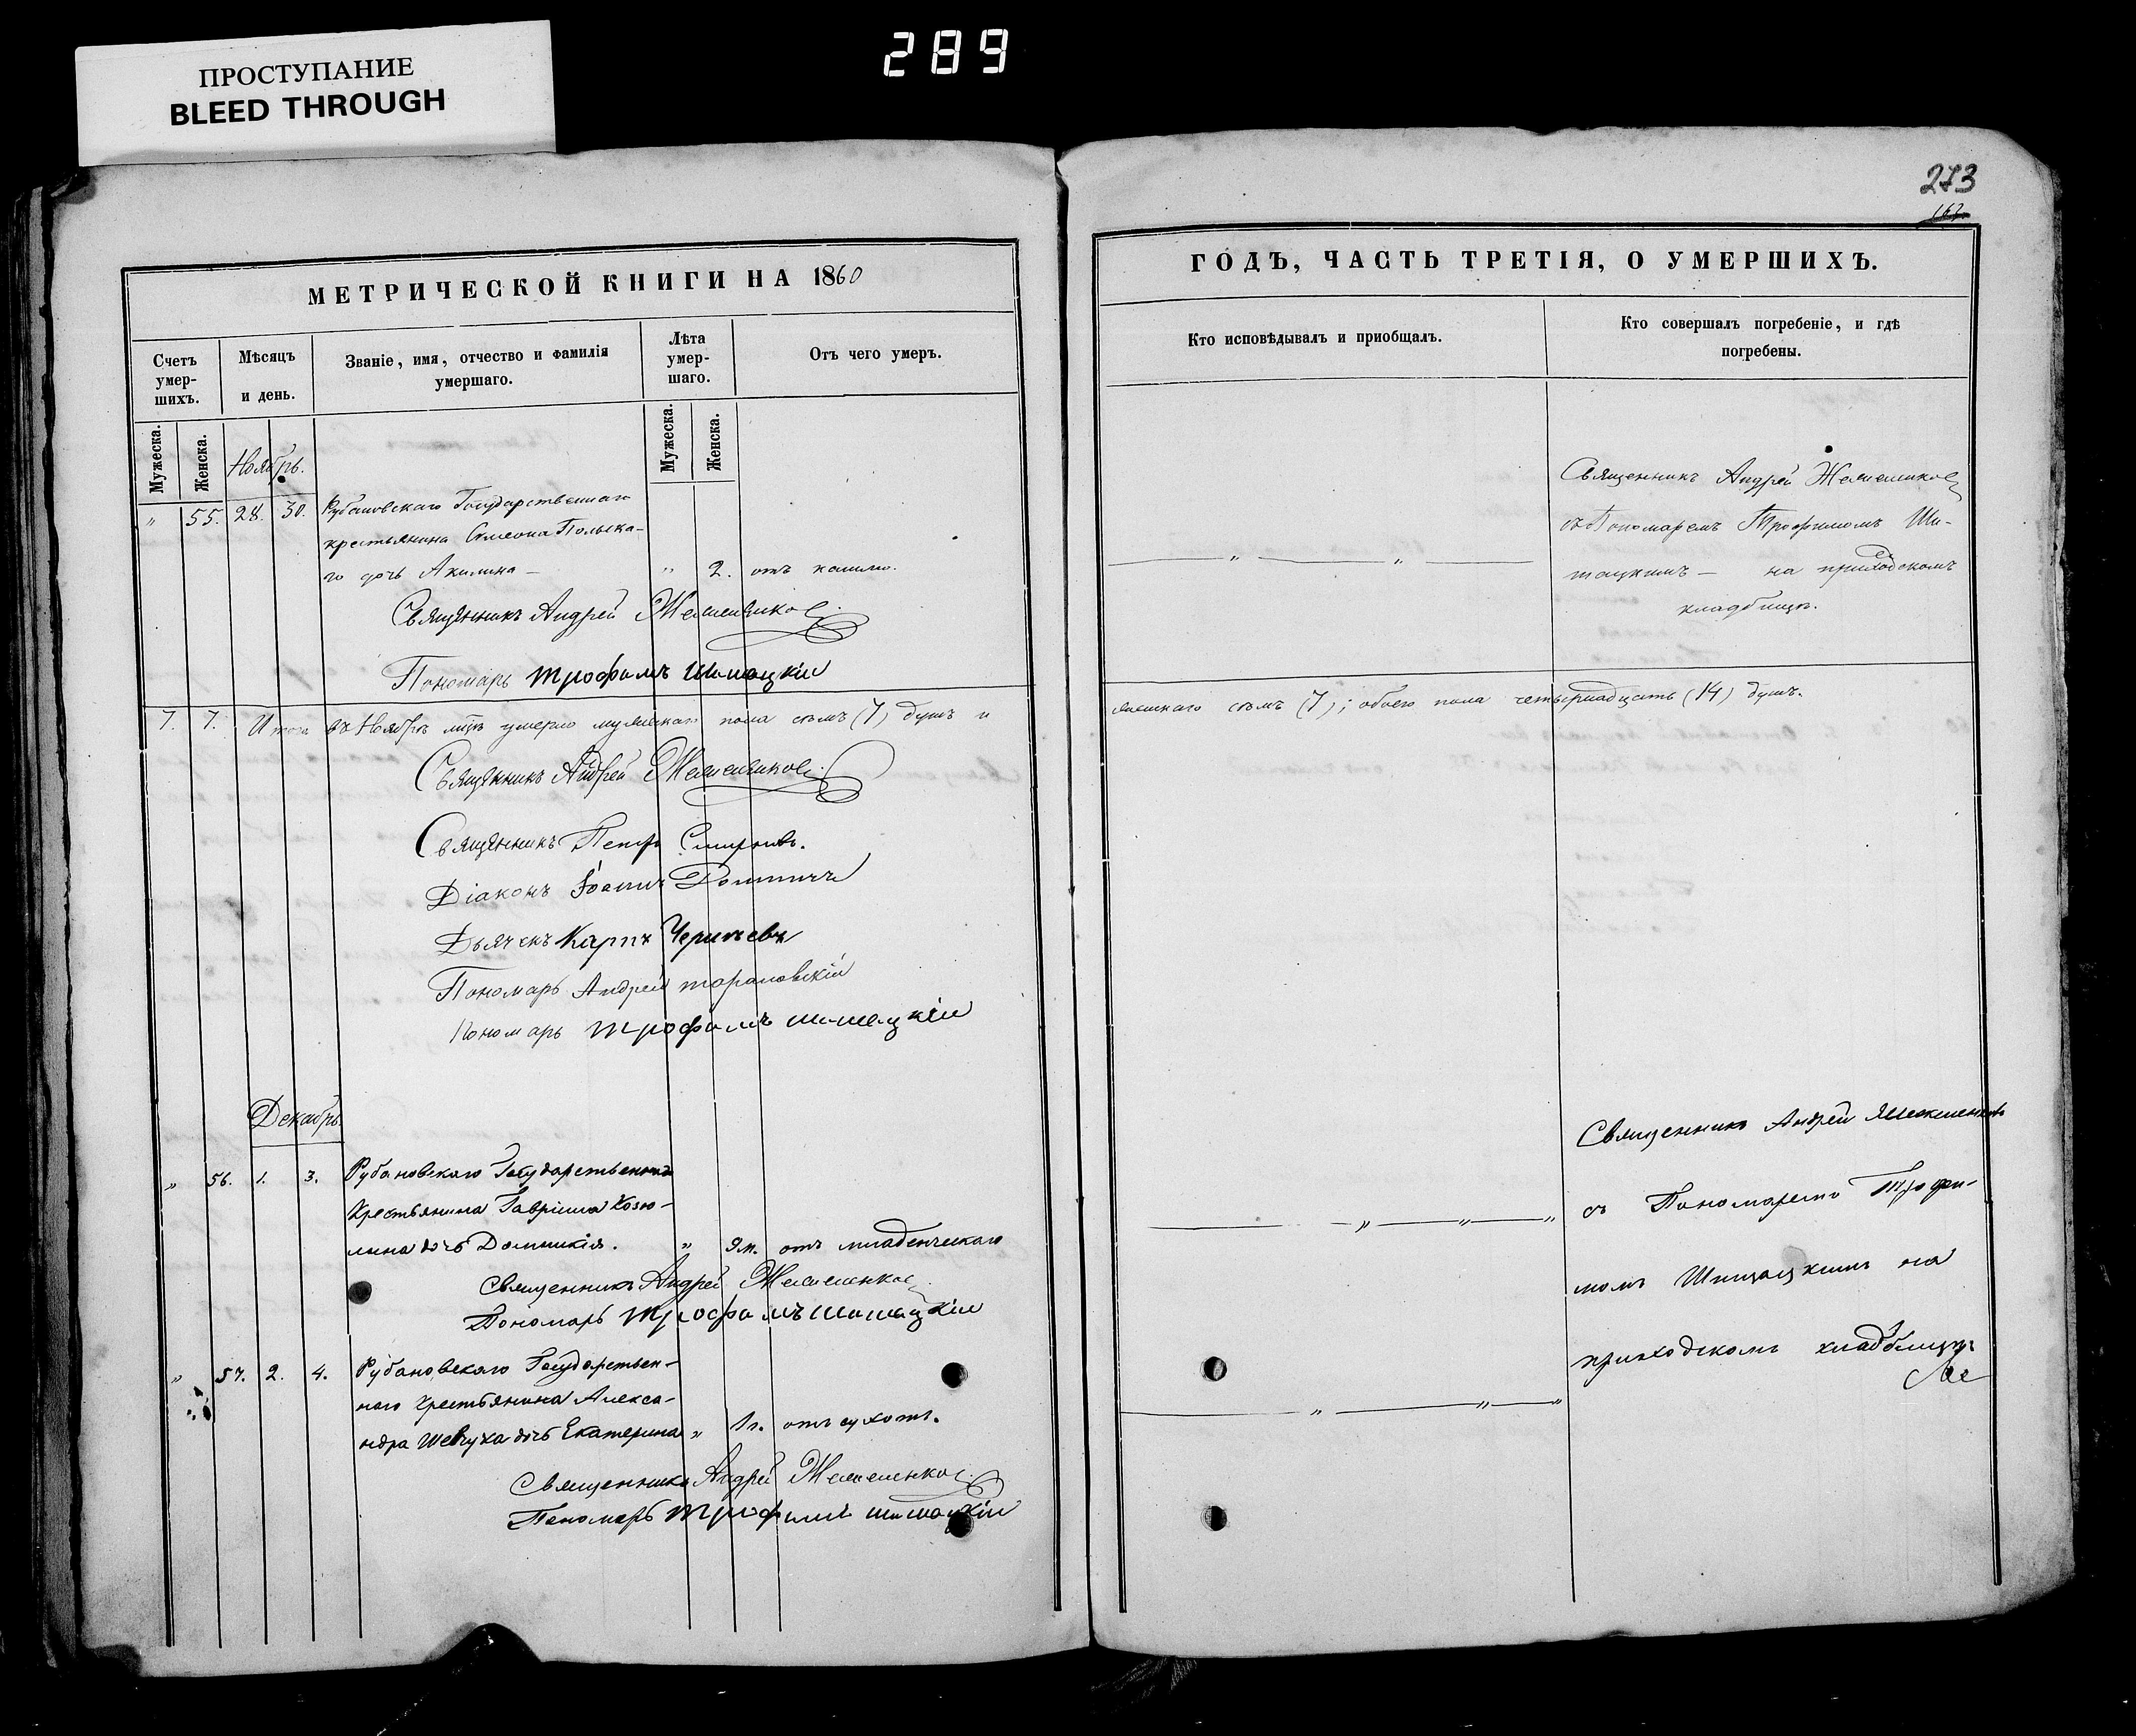 ПРОСТУПАНИЕ
BLEED THROUGH
289
273
МЕТРИЧЕСКОЙ КНИГИ НА 1860
Счетъ умер-шихъ.
Мѣсяцъ и день.
Званіе, имя, отчество и фамилія умершаго.
Лѣта умер-шаго.
Отъ чего умеръ.
Мужеска.
Женска.
Мужеска.
Женска.
Ноябрь.
" 55. 28. 30. Рубановскаго Государственнаго
крестьянина Симеона Польска-
го дочь Акилина — " 2. отъ кашлю.
Священникъ Андрей
Пономарь Трофимъ Шишацкій
7. 7. Итого въ Ноябрѣ мцѣ умерло мужескаго пола семъ (7) душъ и
Священникъ Андрей
Священникъ Петръ Смирновъ.
Діаконъ Іоаннъ
Дьячекъ Карпъ
Пономарь Андрей
Пономарь Трофимъ Шишацкій
Декабрь.
" 56. 1. 3. Рубановскаго Государственнаго
Крестьянина Гавріила Козю-
лина дочь Домникія. " 9 м. отъ младенческаго
Священникъ Андрей
Пономарь Трофимъ Шишацкій
" 57. 2. 4. Рубановскаго Государствен-
наго Крестьянина Алекса-
ндра Шевчука дочь Екатерина " 1 г. отъ сухотъ.
Священникъ Андрей
Пономарь Трофимъ Шишацкій
ГОДЪ, ЧАСТЬ ТРЕТІЯ, О УМЕРШИХЪ.
Кто исповѣдывалъ и приобщалъ.
Кто совершалъ погребеніе, и гдѣ
погребены.
Священникъ Андрей
съ Пономаремъ Трофимомъ Ши-
шацкимъ — на приходскомъ
кладбищѣ.
женскаго семъ (7); обоего пола четырнадцать (14) душъ.
Священникъ Андрей
съ Пономаремъ Трофи-
момъ Шишацкимъ на
приходскомъ кладбищѣ